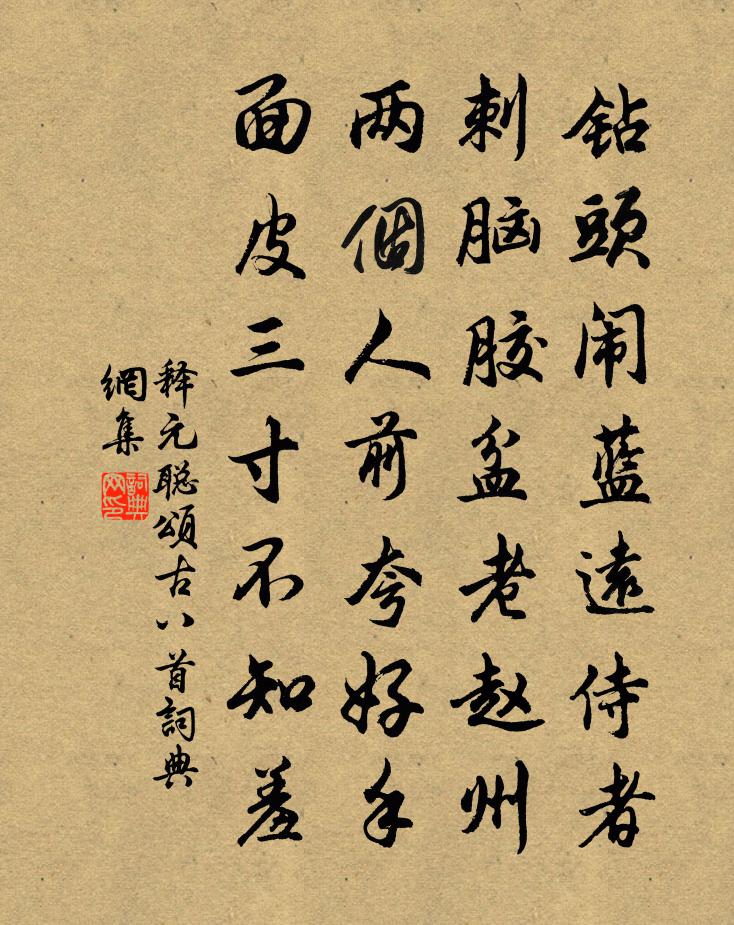 钻頭闹藍遠侍者
刺脑胶盆老赵州
两個人前夸好手
面皮三寸不知羞
释元聪頌古八首詞典
網集
詞典
网印